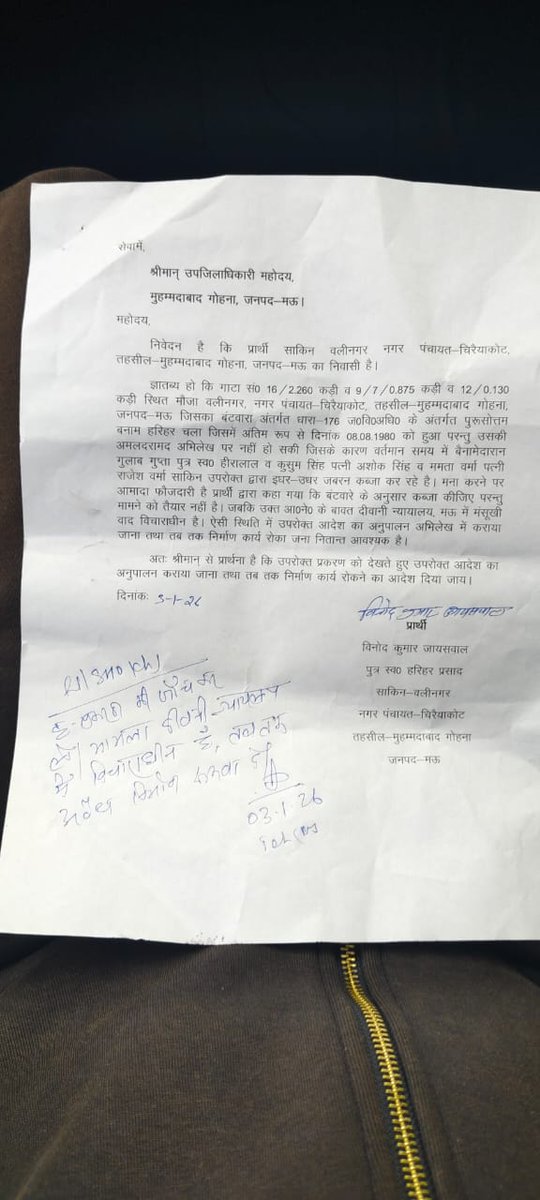 सेवामें,
श्रीमान् उपजिलाधिकारी महोदय,
मुहम्मदाबाद गोहना, जनपद–मऊ।
महोदय,
निवेदन है कि प्रार्थी साकिन वलीनगर नगर पंचायत–चिरैयाकोट,
तहसील–मुहम्मदाबाद गोहना, जनपद–मऊ का निवासी है।
ज्ञातब्य हो कि गाटा सं0 16/2.260 कड़ी व 9/7/0.875 कड़ी व 12/0.130
कड़ी स्थित मौजा वलीनगर, नगर पंचायत–चिरैयाकोट, तहसील–मुहम्मदाबाद गोहना,
जनपद–मऊ जिसका बंटवारा अंतर्गत धारा–176 ज0वि0अधि0 के अंतर्गत पुरूसोत्तम
बनाम हरिहर चला जिसमें अंतिम रूप से दिनांक 08.08.1980 को हुआ परन्तु उसकी
अमलदरामद अभिलेख पर नहीं हो सकी जिसके कारण वर्तमान समय में बैनामेदारान
गुलाब गुप्ता पुत्र स्व0 हीरालाल व कुसुम सिंह पत्नी अशोक सिंह व ममता वर्मा पत्नी
राजेश वर्मा साकिन उपरोक्त द्वारा इधर–उधर जबरन कब्जा कर रहे है। मना करने पर
आमादा फौजदारी है प्रार्थी द्वारा कहा गया कि बंटवारे के अनुसार कब्जा कीजिए परन्तु
मामने को तैयार नहीं है। जबकि उक्त आ0ने0 के बावत दीवानी न्यायालय, मऊ में मंसूखी
वाद विचाराधीन है। ऐसी स्थिति में उपरोक्त आदेश का अनुपालन अभिलेख में कराया
जाना तथा तब तक निर्माण कार्य रोका जना नितान्त आवश्यक है।
अतः श्रीमान् से प्रार्थना है कि उपरोक्त प्रकरण को देखते हुए उपरोक्त आदेश का
अनुपालन कराया जाना तथा तब तक निर्माण कार्य रोकने का आदेश दिया जाय।
दिनांकः 3-1-26
विनोद कुमार जायसवाल
प्रार्थी
विनोद कुमार जायसवाल
पुत्र स्व0 हरिहर प्रसाद
साकिन–वलीनगर
नगर पंचायत–चिरैयाकोट
तहसील–मुहम्मदाबाद गोहना
जनपद–मऊ
की जाँच कर
लें। मामला दीवानी न्यायालय
में विचाराधीन है, तब तक
अवैध निर्माण
03.1.26